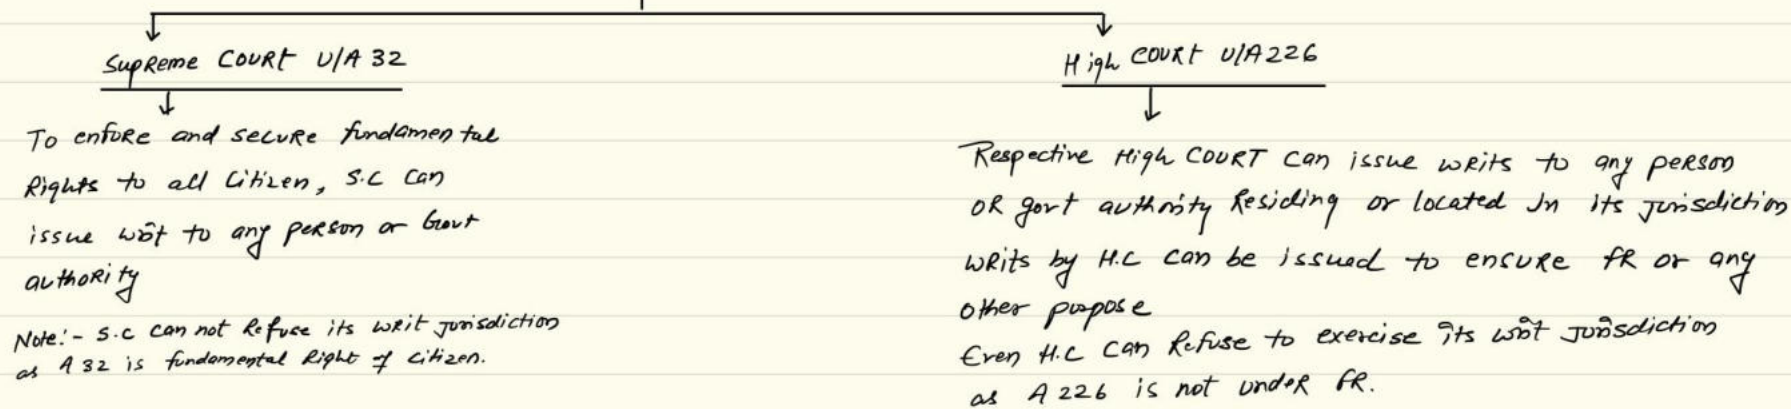 Supreme Court U/A 32
To enfore and secure fundamental
Rights to all Citizen, S.C can
issue writ to any person or Govt
authority
Note:- S.C can not Refuse its writ jurisdiction
as A 32 is fundamental Right of citizen.
High Court U/A 226
Respective High COURT can issue writs to any person
OR govt authority Residing or located In its jurisdiction
writs by H.C can be issued to ensure FR or any
other purpose
Even H.C can Refuse to exercise its writ Jurisdiction
as A 226 is not under FR.